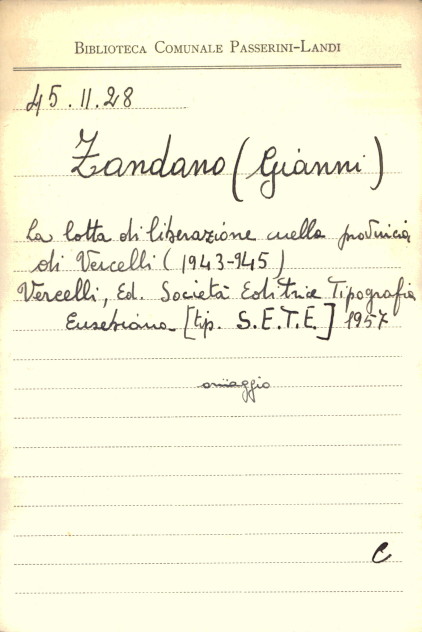 BIBLIOTECA COMUNALE PASSERINI-LANDI
45.11.28
Zandano (Gianni)
La lotta di liberazione nella provincia
di Vercelli (1943-945)
Vercelli, Ed. Società Editrice Tipografia
Eusebiana [tip. S.E.T.E.] 1957
omaggio
C